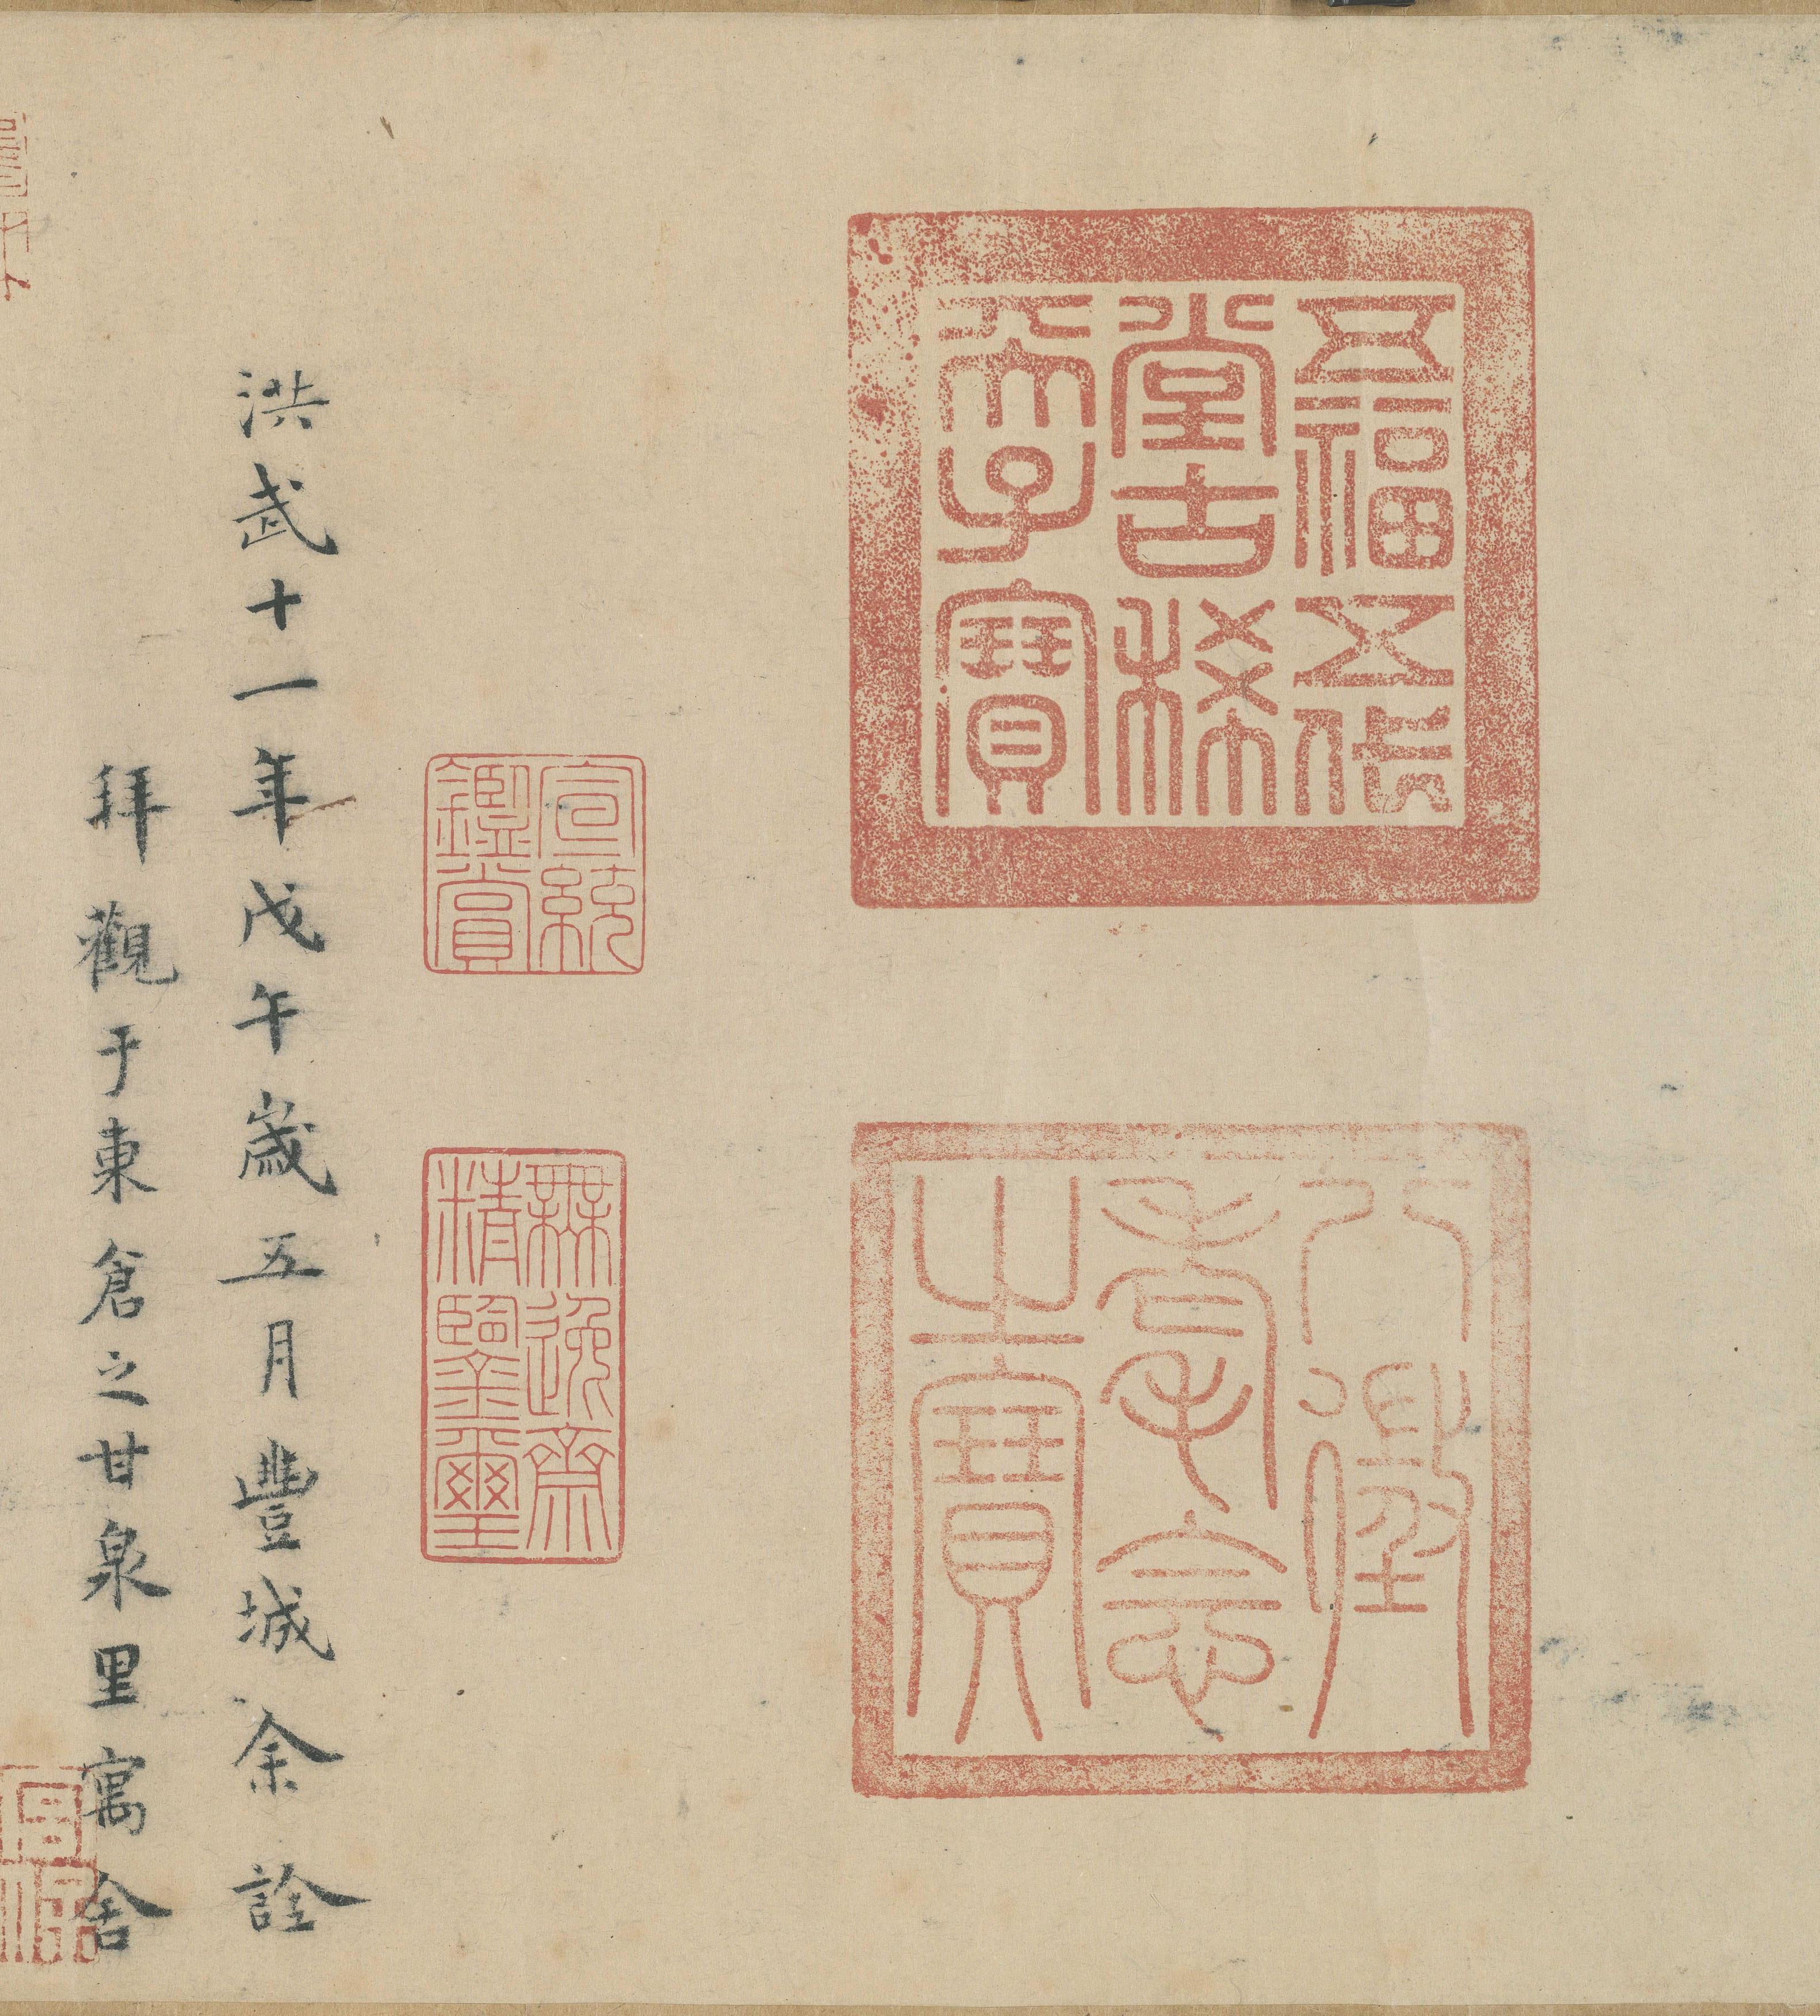 五福五代
堂古稀
天子寶
八徵
耄念
之寶
宣統
鑑賞
無逸齋
精鑒璽
洪武十一年戊午歲五月豐城余詮
拜觀于東倉之甘泉里寓舍